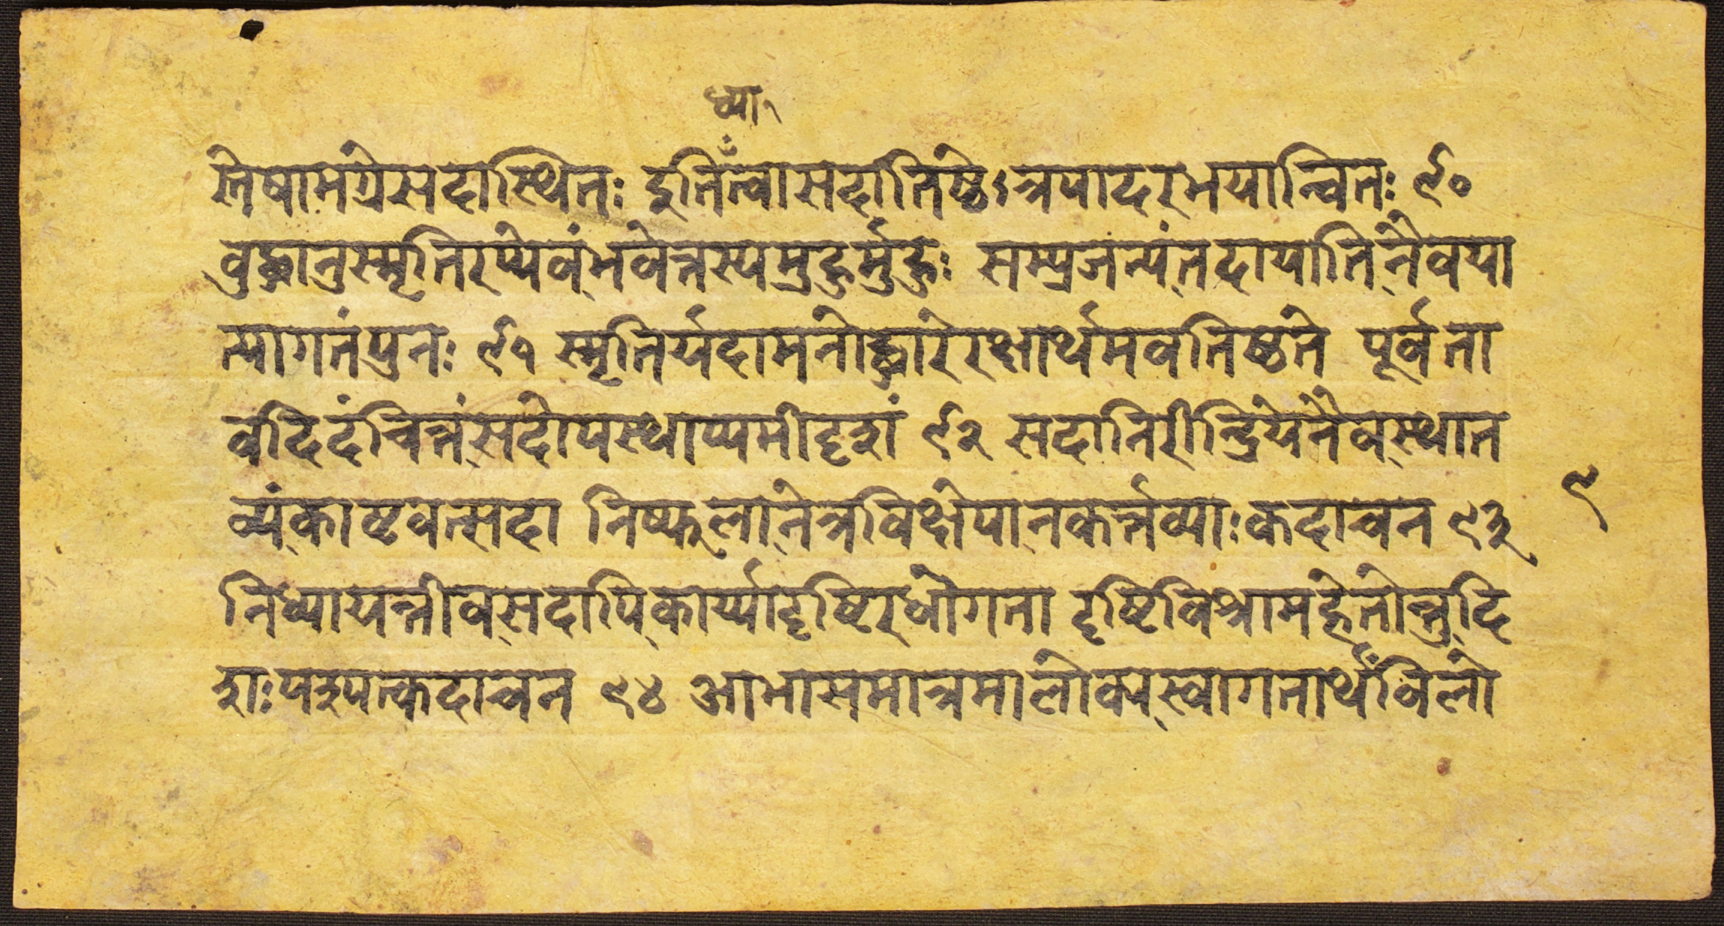 ध्या१
स्तेषामग्रेसदास्थितः इतित्वासदातिष्ठेत्त्रपादरभयान्वितः ९०
वुद्धानुस्मृतिरप्येवंभवेत्तस्यमुहुर्मुहुः सम्प्रजन्यंतदायातिनैवया
त्यागतंपुनः ९१ स्मृतिर्यदामनोद्वारेरक्षार्थमवतिष्ठते पूर्वता
वदिदंचित्तंसदोपस्थाप्यमीदृशं ९२ सदानिरीन्द्रियेनैवस्थात
व्यंकाष्टवत्सदा निष्फलानेत्रविक्षेपानकर्त्तव्याःकदाचन ९३
९
निध्यायन्तीवसदापिकार्य्यादृष्टिरधोगता दृष्टिविश्रामहेतोन्तुदि
शःपश्यत्कदाचन ९४ आभासमात्रमालोक्यस्वागतार्थंविलो